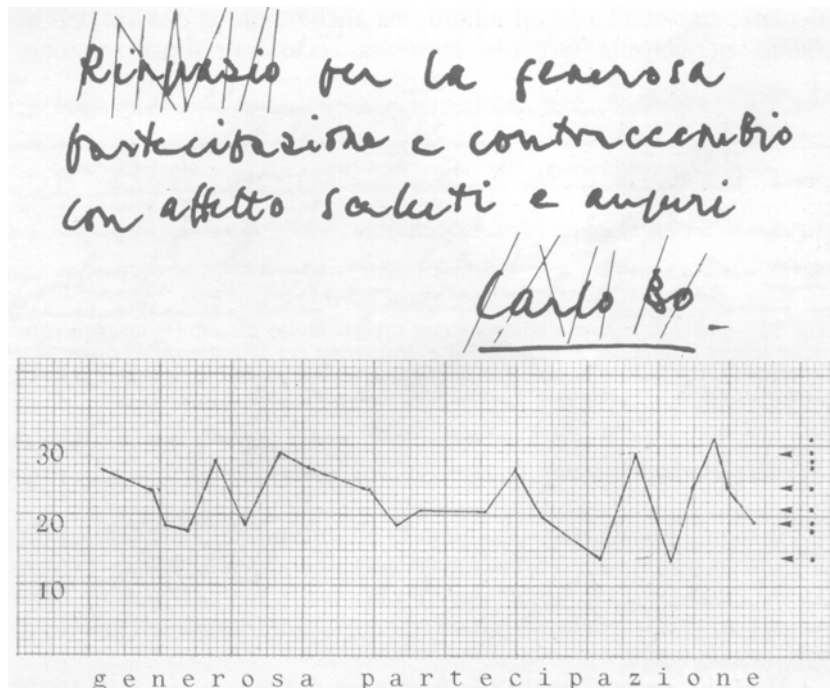 Ringrazio per la generosa
partecipazione e contraccambio
con affetto saluti e auguri
Carlo Bo
30
20
10
generosa partecipazione